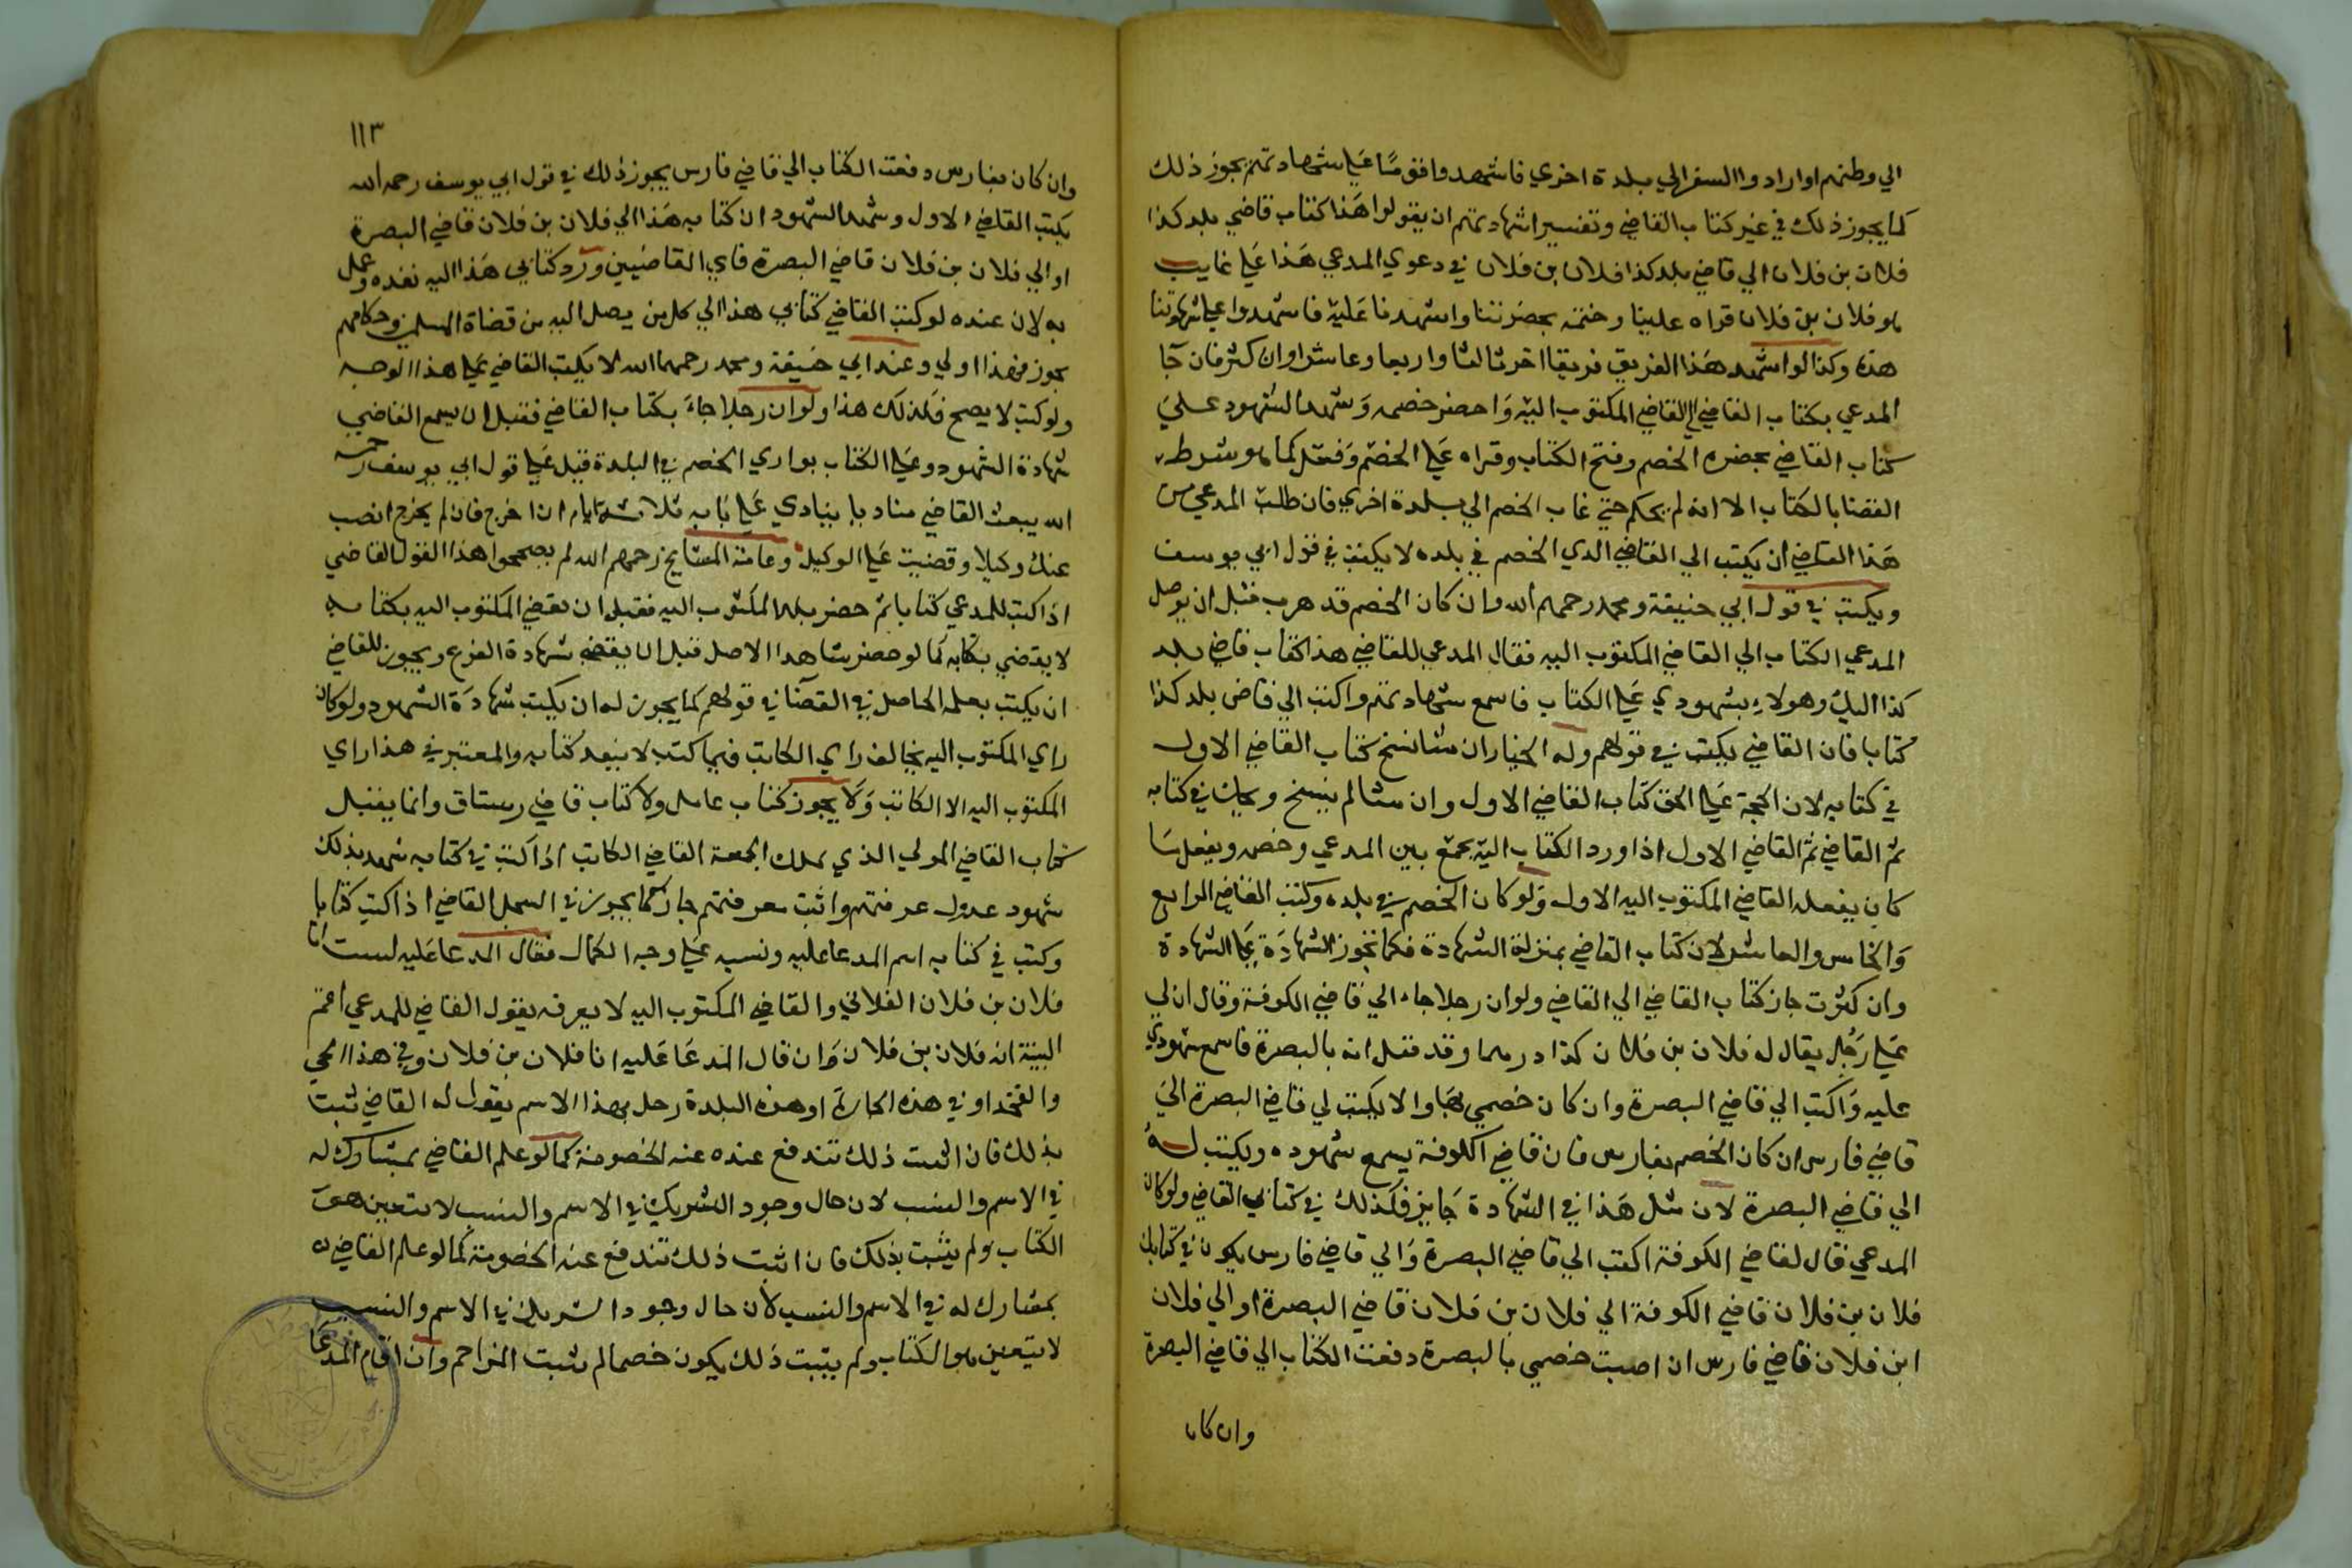 الي وطنهم او ارادوا السفر الي بلدة اخري فاشهدوا قومًا علي شهادتهم يجوز ذلك
كما يجوز ذلك في غير كتاب القاضي وتفسير اشهادتهم ان يقولوا هذا كتاب قاضي بلد كذا
فلان بن فلان الي قاضي بلد كذا فلان بن فلان في دعوي المدعي هذا علي غايب
هو فلان بن فلان قراه علينا وختمه بحضرتنا واشهدنا عليه فاشهدوا علي شهادتنا
هذه وكذا لو اشهد هذا الفريق فريقا اخر ثالثا واربعا وعاشرا وان كثر فان جا
المدعي بكتاب القاضي الي القاضي المكتوب اليه واحضر خصمه وشهد الشهود علي
كتاب القاضي بحضرة الخصم وفتح الكتاب وقراه علي الخصم وفعل كما هو شرط
القضا بالكتاب الا انه لم يحكم حتي غاب الخصم الي بلدة اخري فان طلب المدعي من
هذا القاضي ان يكتب الي القاضي الذي الخصم في بلده لا يكتب في قول ابي يوسف
ويكتب في قول ابي حنيفة ومحمد رحمهم الله وان كان الخصم قد هرب قبل ان يوصل
المدعي الكتاب الي القاضي المكتوب اليه فقال المدعي للقاضي هذا كتاب قاضي بلد
كذا اليك وهولاء شهودي علي الكتاب فاسمع شهادتهم واكتب الي قاضي بلد كذا
كتابا فان القاضي يكتب في قولهم وله الخيار ان شا نسخ كتاب القاضي الاول
في كتابه لان الحجة علي الحق كتاب القاضي الاول وان شا لم ينسخ ويحك في كتابه
ثم القاضي ثم القاضي الاول اذا ورد الكتاب اليه يجمع بين المدعي وخصمه ويفعل ما
كان يفعله القاضي المكتوب اليه الاول ولو كان الخصم في بلده وكتب القاضي الرابع
والخامس والعاشر لان كتاب القاضي بمنزلة الشهادة فكما تجوز الشهادة علي الشهادة
وان كثرت جاز كتاب القاضي الي القاضي ولو ان رجلا جاء الي قاضي الكوفة وقال ان لي
علي رجل يقال له فلان بن فلان كذا درهما وقد قيل انه بالبصرة فاسمع شهودي
عليه واكتب الي قاضي البصرة وان كان خصمي بها والا يكتب لي قاضي البصرة الي
قاضي فارس ان كان الخصم بفارس فان قاضي الكوفة يسمع شهوده ويكتب له
الي قاضي البصرة لان مثل هذا في الشهادة جايز فكذلك في كتابي القاضي ولو كان
المدعي قال لقاضي الكوفة اكتب الي قاضي البصرة والي قاضي فارس يكون في كتابك
فلان بن فلان قاضي الكوفة الي فلان بن فلان قاضي البصرة او الي فلان
ابن فلان قاضي فارس ان اصبت خصمي بالبصرة دفعت الكتاب الي قاضي البصرة
وان كان
١١٣
وان كان بفارس دفعت الكتاب الي قاضي فارس يجوز ذلك في قول ابي يوسف رحمه الله
يكتب القاضي الاول وشهد الشهود ان كتابه هذا الي فلان بن فلان قاضي البصرة
او الي فلان بن فلان قاضي البصرة فاي القاضيين ورد كتابي هذا اليه نفده وعمل
به لان عنده لو كتب القاضي كتابي هذا الي كل من يصل اليه من قضاة المسلمين وحكامهم
يجوز فهذا اولي وعند ابي حنيفة ومحمد رحمهما الله لا يكتب القاضي علي هذا الوجه
ولو كتب لا يصح فكذلك هذا ولو ان رجلا جاء بكتاب القاضي فقبل ان يسمع القاضي
شهادة الشهود وعلي الكتاب يواري الخصم في البلدة قيل علي قول ابي يوسف رحمه
الله يبعث القاضي مناديا ينادي علي بابه ثلاثة ايام ان اخرج فان لم يخرج انصب
عنك وكيلا وقضيت علي الوكيل وعامة المشايخ رحمهم الله لم يصححوا هذا القول القاضي
اذا كتب للمدعي كتابا ثم حضر بلد المكتوب اليه فقبل ان يقضي المكتوب اليه بكتابه
لا يقضي بكتابه كما لو حضر شاهدا الاصل قبل ان يقضي شهادة الفرع ويجوز للقاضي
ان يكتب بعلمه الحاصل في القضا في قولهم كما يجوز له ان يكتب شهادة الشهود ولو كان
راي المكتوب اليه يخالف راي الكاتب فيما كتب لا ينفد كتابه والمعتبر في هذا راي
المكتوب اليه الا الكاتب ولا يجوز كتاب عامل ولا كتاب قاضي رستاق وانما يقبل
كتاب القاضي المولي الذي يملك الجمعة القاضي الكاتب اذا كتب في كتابه شهد بذلك
شهود عدول عرفتهم واثبت معرفتهم جاز كما يجوز في السجل القاضي اذا كتب كتابا
وكتب في كتابه اسم المدعا عليه ونسبه علي وجه الكمال فقال المدعا عليه لست انا
فلان بن فلان الفلاني والقاضي المكتوب اليه لا يعرفه يقول القاضي للمدعي اقم
البينة انه فلان بن فلان وان قال المدعا عليه انا فلان بن فلان وفي هذا الحي
والفخد او في هذه الحارة او هذه البلدة رجل بهذا الاسم يقول له القاضي ثبت
بذلك فان اثبت ذلك تندفع عنده عنه الخصومة كما لو علم القاضي بمشارك له
في الاسم والنسب لان حال وجود الشريك في الاسم والنسب لا يتعين هو
الكتاب ولم يثبت بذلك فان اثبت ذلك تندفع عنه الخصومة كما لو علم القاضي له
بمشارك له في الاسم والنسب لان حال وجود الشريك في الاسم والنسب
لا يتعين هو الكتاب ولم يثبت ذلك يكون خصما لم يثبت المزاحم وان اقام المدعا